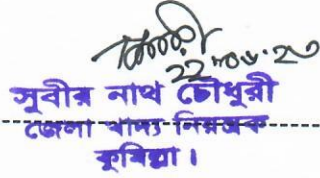 ২২.০৬.২৩
সুবীর নাথ চৌধুরী
জেলা খাদ্য নিয়ন্ত্রক
কুমিল্লা।